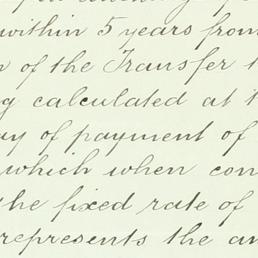 within 5 years from
of the Transfer
calculated at
of payment of
which when con
the fixed rate of
represents the am